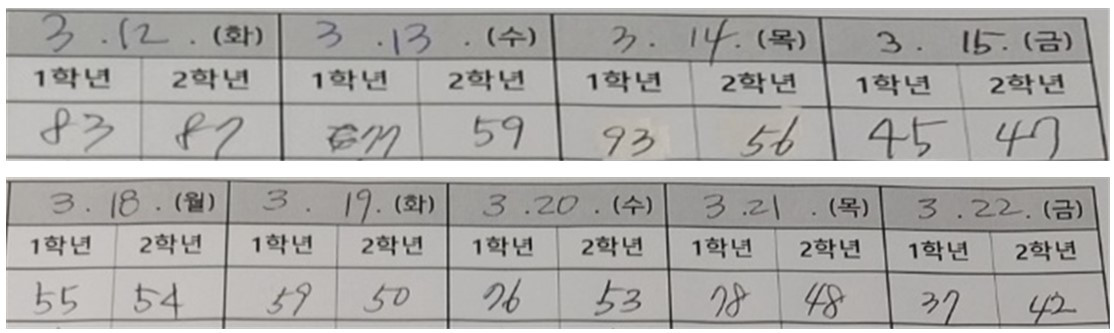 3 . 12 . (화) 3 . 13 . (수) 3 . 14 . (목) 3 . 15 . (금)
1학년 2학년 1학년 2학년 1학년 2학년 1학년 2학년
83 87 77 59 93 56 45 47
3 . 18 . (월) 3 . 19 . (화) 3 . 20 . (수) 3 . 21 . (목) 3 . 22 . (금)
1학년 2학년 1학년 2학년 1학년 2학년 1학년 2학년 1학년 2학년
55 54 59 50 76 53 78 48 37 42